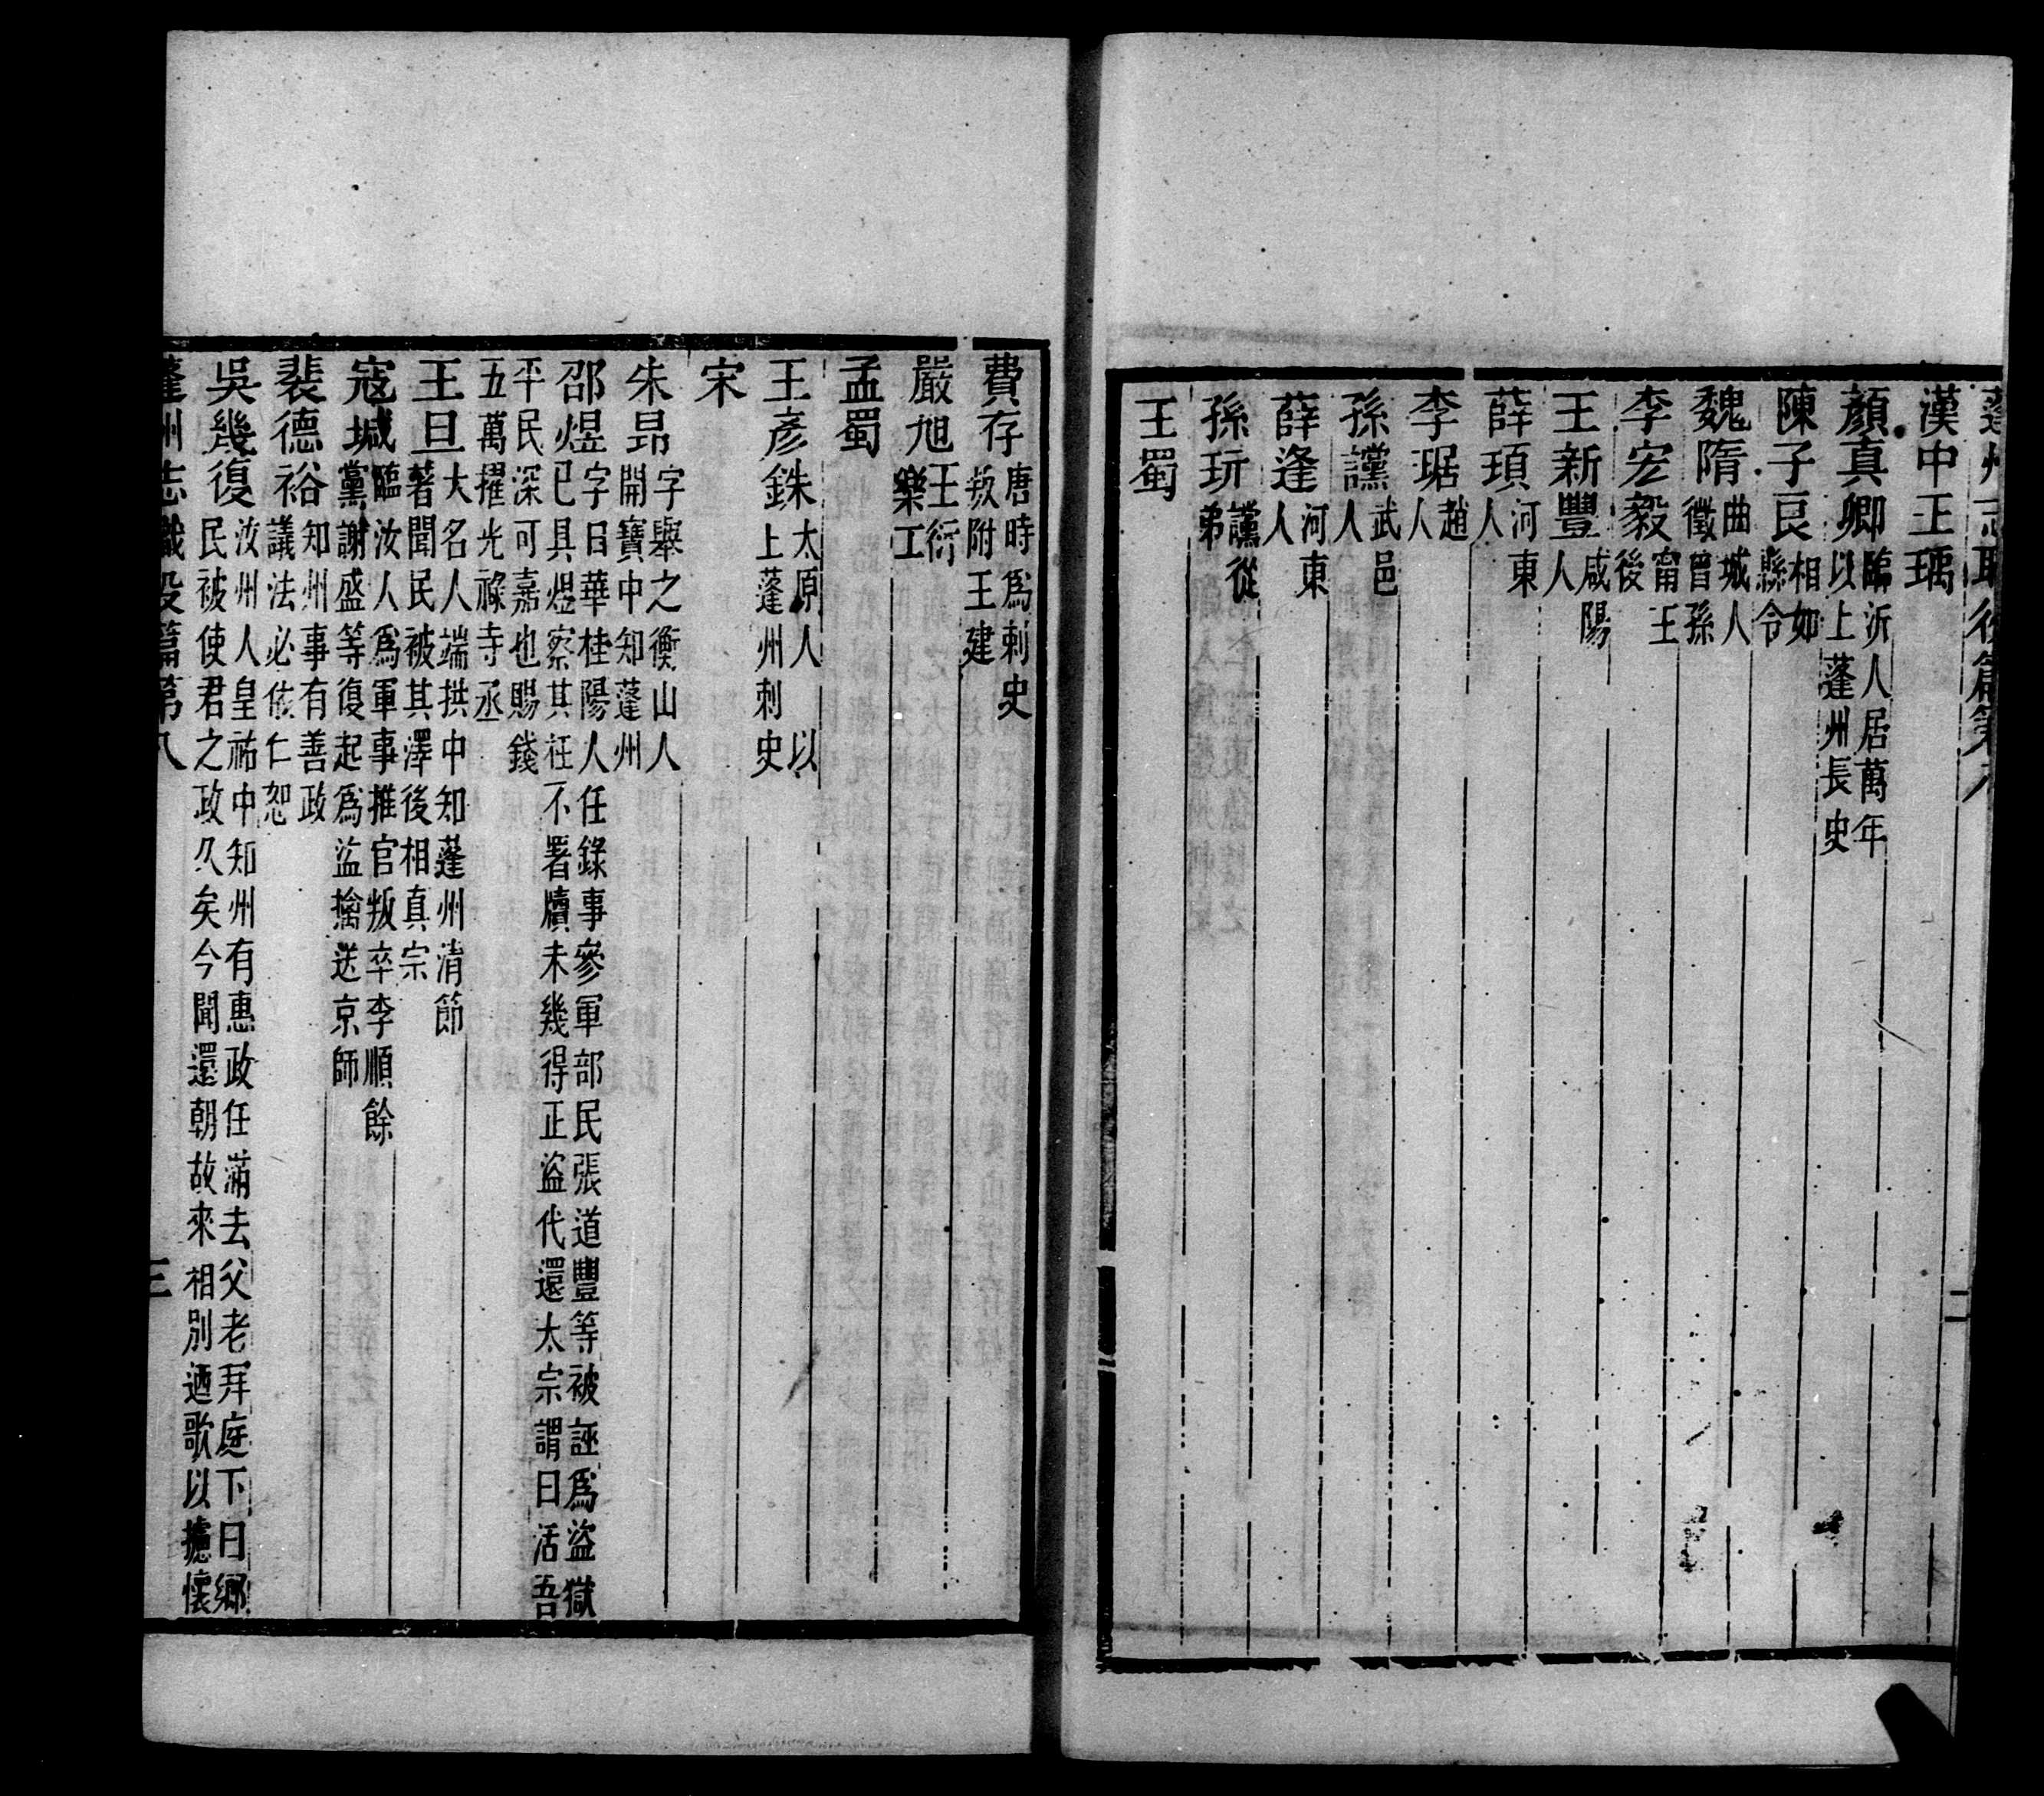 漢中王瑀
顏真卿 臨沂人居萬年
以上蓬州長史
陳子良 相如
縣令
魏隋 曲城人
徵曾孫
李宏毅 甯王
後
王新豐 咸陽
人
薛頊 河東
人
李琚 趙
人
孫讜 武邑
人
薛逢 河東
人
孫玩 讜從
弟
王蜀
費存 唐時爲剌史
叛附王建
嚴旭 王衍
樂工
孟蜀
王彥銖 太原人 以
上蓬州刺史
宋
朱昂 字舉之衡山人
開寶中知蓬州
邵煜 字日華桂陽人任錄事參軍部民張道豐等被誣爲盜獄
已具煜察其枉不署牘未幾得正盜代還太宗謂曰活吾
平民深可嘉也賜錢
五萬擢光祿寺丞
王旦 大名人端拱中知蓬州清節
著聞民被其澤後相真宗
寇瑊 臨汝人爲軍事推官叛卒李順餘
黨謝盛等復起爲盜擒送京師
裴德裕 知州事有善政
議法必依仁恕
吳幾復 汝州人皇祐中知州有惠政任滿去父老拜庭下曰鄉
民被使君之政久矣今聞還朝故來相別迺歌以攄懷
蓬州志職役篇第八 三